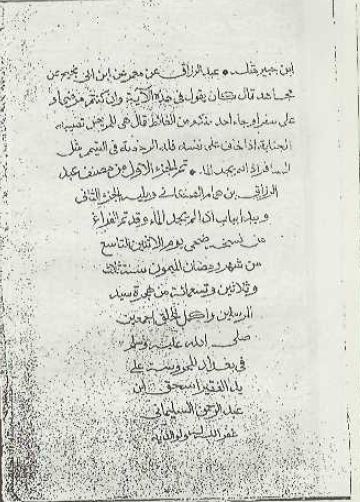 ابن جبير مثله • عبد الرزاق عن معمر عن ابن ابي نجيح عن
مجاهد قال كان يقول في هذه الآية وان كنتم مرضى او
على سفر او جاء احد منكم من الغائط قال هي للمريض تصيبه
الجنابة اذا خاف على نفسه فله الرخصة في التيمم مثل
المسافر اذا لم يجد الماء • تم الجزء الاول من مصنف عبد
الرزاق بن همام الصنعاني ويليه الجزء الثاني
وبدا باب اذا لم يجد الماء وقد تم الفراغ
من نسخه ضحى يوم الاثنين التاسع
من شهر رمضان الميمون سنة ثلاث
وثلاثين وتسعمائة من هجرة سيد
المرسلين واكمل الخلق اجمعين
صلى الله عليه وسلم
في بغداد المحروسة على
يد الفقير اسحق ابن
عبد الرحمن السليماني
غفر الله له ولوالديه